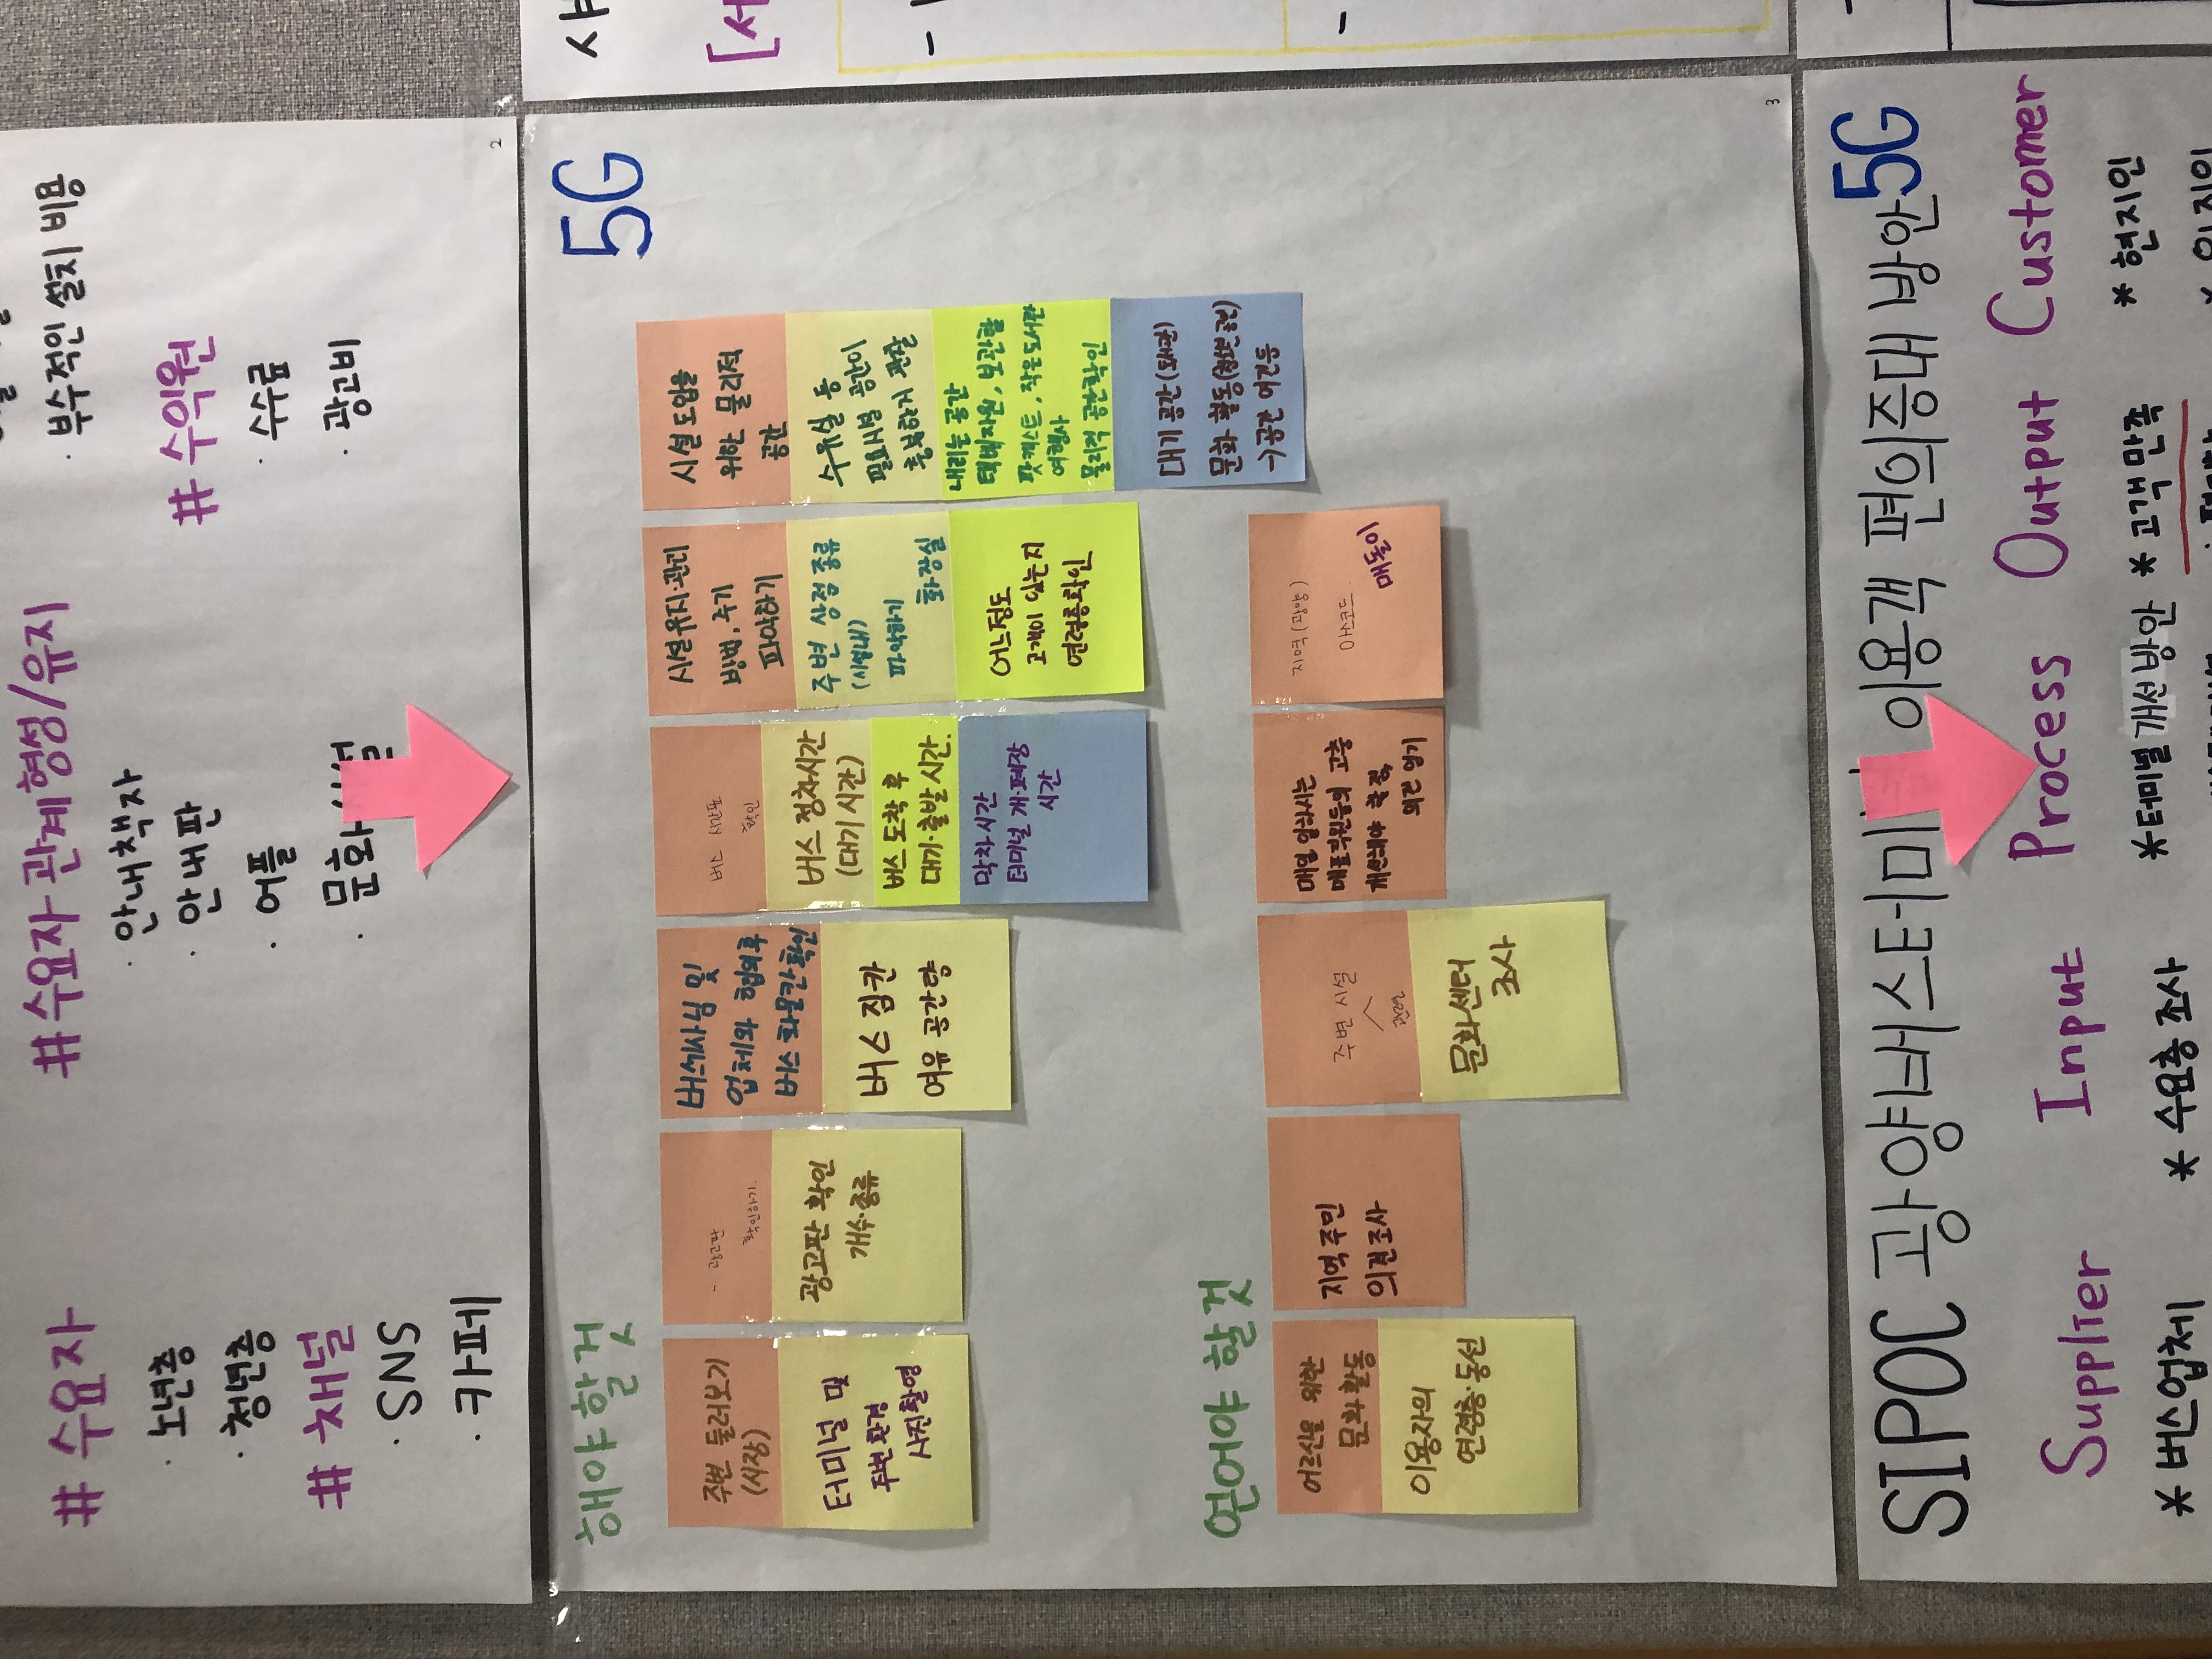 # 수요자
· 노년층
· 청년층
# 채널
· SNS
· 카페
# 수요자 관계형성/유지
· 안내책자
· 안내판
· 어플
· 문화
· 부수적인 설치 비용
# 수익원
· 수수료
· 광고비
2
해야할것
5G
주변 둘러보기
(시장)
터미널 및
주변환경
사진촬영
- 광고판
확인하기.
광고판 확인
개수·종류
버스기사님 및
업체와 협의후
버스 화물칸 확인
버스 짐칸
여유 공간량
버스 시간표
확인
버스 정차시간
(대기 시간)
버스 도착 후
대기·출발 시간.
막차시간
터미널 개·폐장
시간
시설유지·관리
방법, 주기
파악하기
주변 상점 종류
(시설내)
파악하기
화장실
어느정도
고객이 있는지
연령층확인
시설 도입을
위한 물리적
공간
수유실 등
필요시설 공간이
충분한지 관찰
내리는 공간
택배자원, 보관할
팟캐스트, 작은도서관
여행사
물리적 공간확인
대기 공간
문화 활동
→공간 여건등
얻어야 할것
어르신을 위한
문화활동
이용자의
연령층·동선
지역주민
의견조사
주변 시설
관련
문화센터
조사
매일 일하시는
매표직원들의 고충
개선해야 할 점,
의견 얻기
지역(광양)
마스코트
매돌이
3
SIPOC 광양버스터미 이용객 편의증대 방안
5G
Supplier
* 버스업체
Input
* 수요층 조사
Process
* 터미널 개선 방안
Output
* 고객 만족
Customer
* 현지인